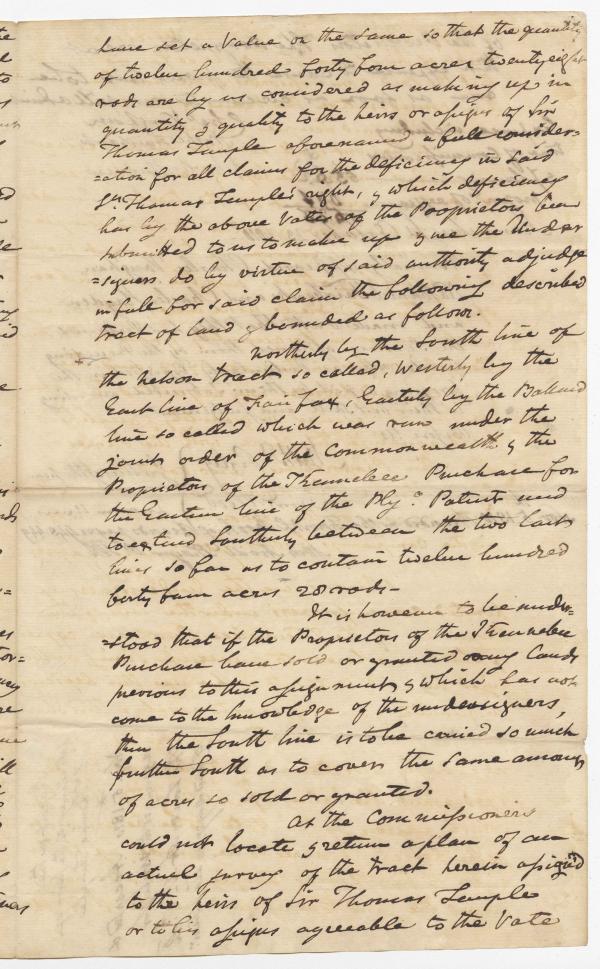 have set a Value on the same so that the quantity
of twelve hundred forty four acres twenty eight
rods are by us considered as making up in
quantity & quality to the heirs or assigns of Sir
Thomas Temple aforenamed a full consider=
=ation for all claims for the deficiency in said
Sr. Thomas Temple's right, & which deficiency
has by the above Votes of the Proprietors been
submitted to us to make up & we the Under
=signers do by virtue of said authority adjudge
in full for said claim the following described
tract of land & bounded as follow.
Northerly by the South line of
the Nelson tract so called, Westerly by the
East line of Fairfax, Easterly by the Ballard
line so called which was run under the
joint order of the Commonwealth & the
Proprietors of the Kennebec Purchase for
the Eastern line of the Ply.o Patent and
to extend Southerly between the two last
lines so far as to contain twelve hundred
forty four acres 28 rods -
It is however to be under=
=stood that if the Proprietors of the Kennebec
Purchase have sold or granted any Lands
previous to this assignment & which has not
come to the knowledge of the undersigners,
then the South line is to be carried so much
further South as to cover the same amount
of acres so sold or granted.
As the Commissioners
could not locate & return a plan of an
actual survey of the tract herein assign'd
to the heirs of Sir Thomas Temple
or to his assigns agreeable to the Vote